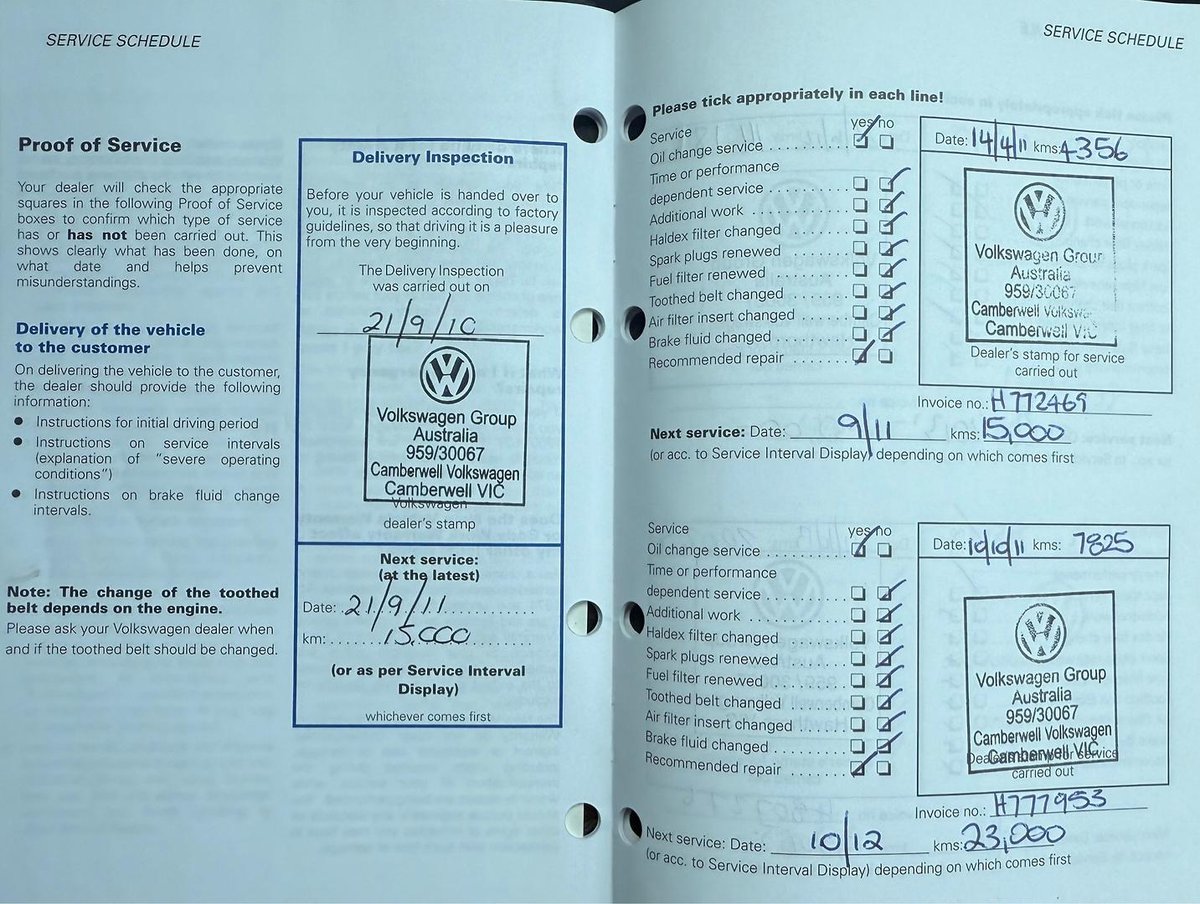 SERVICE SCHEDULE
Proof of Service
Your dealer will check the appropriate
squares in the following Proof of Service
boxes to confirm which type of service
has or has not been carried out. This
shows clearly what has been done, on
what date and helps prevent
misunderstandings.
Delivery of the vehicle
to the customer
On delivering the vehicle to the customer,
the dealer should provide the following
information:
● Instructions for initial driving period
● Instructions on service intervals
(explanation of “severe operating
conditions”)
● Instructions on brake fluid change
intervals.
Note: The change of the toothed
belt depends on the engine.
Please ask your Volkswagen dealer when
and if the toothed belt should be changed.
Delivery Inspection
Before your vehicle is handed over to
you, it is inspected according to factory
guidelines, so that driving it is a pleasure
from the very beginning.
The Delivery Inspection
was carried out on
21/9/10
Volkswagen Group
Australia
959/30067
Camberwell Volkswagen
Camberwell VIC
Volkswagen
dealer's stamp
Next service:
(at the latest)
Date: 21/9/11
km: 15.000
(or as per Service Interval
Display)
whichever comes first
SERVICE SCHEDULE
Please tick appropriately in each line!
Service yes no
Oil change service
Time or performance
dependent service
Additional work
Haldex filter changed
Spark plugs renewed
Fuel filter renewed
Toothed belt changed
Air filter insert changed
Brake fluid changed
Recommended repair
Date: 14/4/11 kms: 4356
Volkswagen Group
Australia
959/30067
Camberwell Volkswa
Camberwell VIC
Dealer's stamp for service
carried out
Invoice no.: H772469
Next service: Date: 9/11 kms: 15,000
(or acc. to Service Interval Display) depending on which comes first
Service yes no
Oil change service
Time or performance
dependent service
Additional work
Haldex filter changed
Spark plugs renewed
Fuel filter renewed
Toothed belt changed
Air filter insert changed
Brake fluid changed
Recommended repair
Date: 10/10/11 kms: 7825
Volkswagen Group
Australia
959/30067
Camberwell Volkswagen
Camberwell VIC
Dealer's stamp for service
carried out
Invoice no.: H777953
Next service: Date: 10/12 kms: 23,000
(or acc. to Service Interval Display) depending on which comes first